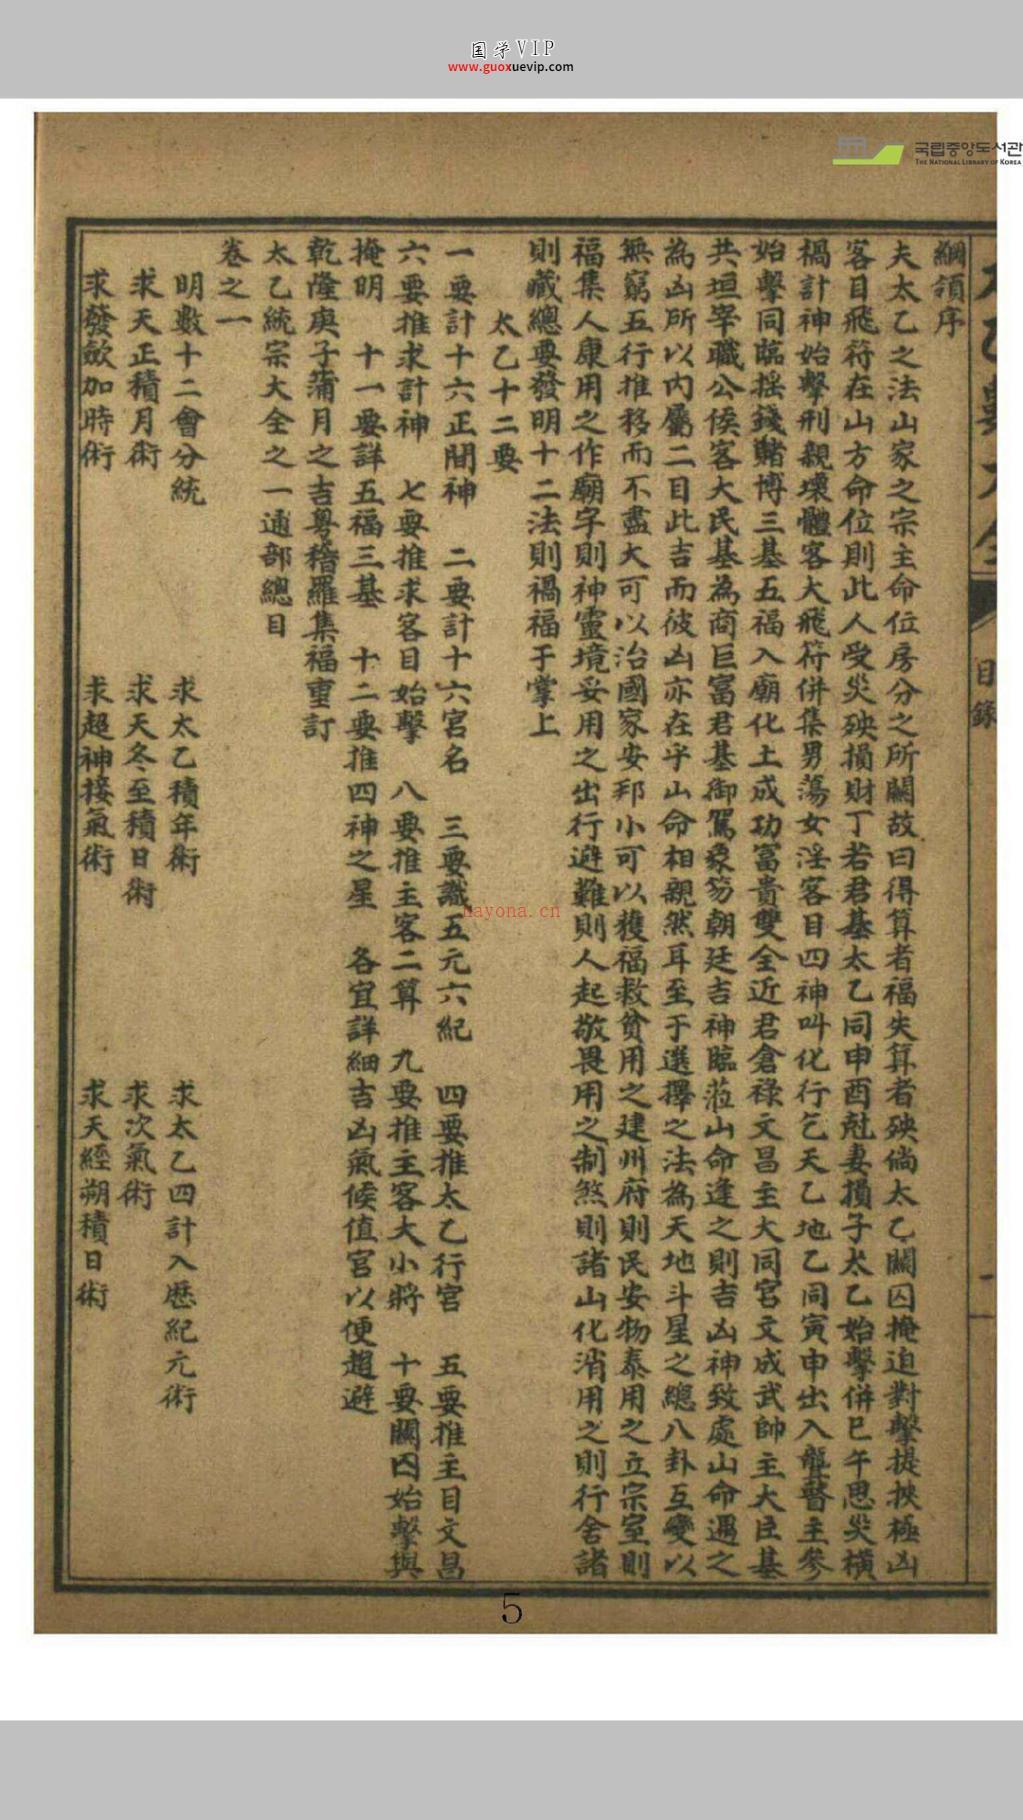 国学VIP
www.guoxuevip.com
국립중앙도서관
THE NATIONAL LIBRARY OF KOREA
目錄
一
綱領序
夫太乙之法山家之宗主命位房分之所關故曰得算者福失算者殃倘太乙關囚掩迫對擊提挾極凶
客目飛符在山方命位則此人受災殃損財丁若君基太乙同申酉尅妻損子太乙始擊併巳午思災橫
禍計神始擊刑親壞體客大飛符併集男蕩女淫客目四神叫化行乞天乙地乙同寅申出入聾瞽主參
始擊同臨揺錢賭博三基五福入廟化土成功富貴雙全近君倉祿文昌主大同宮文成武帥主大臣基
共垣宰職公侯客大民基為商巨富君基御駕象笏朝廷吉神臨蒞山命逢之則吉凶神致處山命遇之
為凶所以内屬二目此吉而彼凶亦在乎山命相親然耳至于選擇之法為天地斗星之總八卦互變以
無窮五行推移而不盡大可以治國家安邦小可以獲福救貧用之建州府則民安物泰用之立宗室則
福集人康用之作廟宇則神靈境妥用之出行避難則人起敬畏用之制煞則諸山化消用之則行舍諸
則藏總要發明十二法則禍福于掌上
太乙十二要
一要計十六正間神　二要計十六宮名　三要識五元六紀　四要推太乙行宮　五要推主目文昌
六要推求計神　七要推求客目始擊　八要推主客二算　九要推主客大小將　十要關囚始擊與
掩明　十一要詳五福三基　十二要推四神之星　各宜詳細吉凶氣候值宮以便趨避
乾隆庚子蒲月之吉粤稽羅集福重訂
太乙統宗大全之一通部總目
卷之一
明數十二會分統　求太乙積年術　求太乙四計入歷紀元術
求天正積月術　求天冬至積日術　求次氣術
求發斂加時術　求超神接氣術　求天經朔積日術
nayona.cn
5